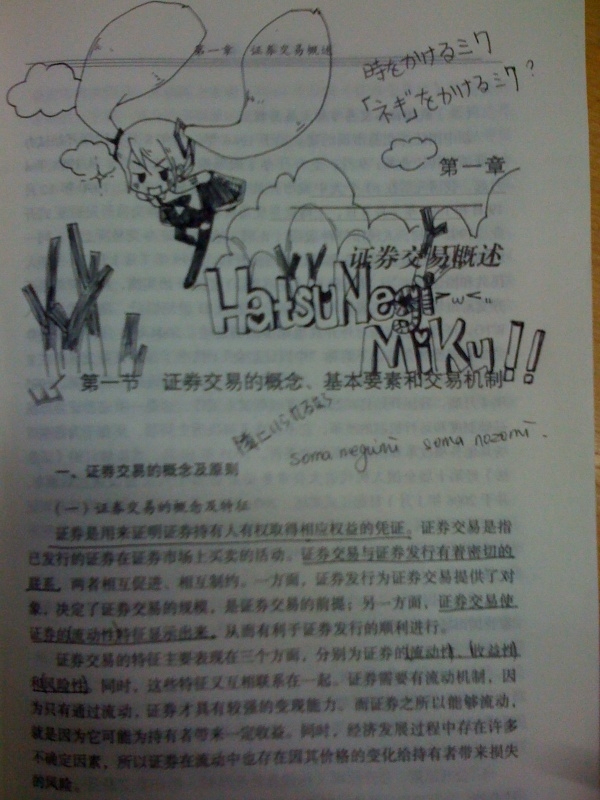 第一章 证券交易概述
時をかけるミク
「ネギ」をかけるミク?
第一章
证券交易概述
HatsuNegi
>"ω<"
MiKu!!
第一节 证券交易的概念、基本要素和交易机制
soma negumi soma nozomi.
一、证券交易的概念及原则
(一)证券交易的概念及特征
证券是用来证明证券持有人有权取得相应权益的凭证。证券交易是指
已发行的证券在证券市场上买卖的活动。证券交易与证券发行有着密切的
联系,两者相互促进、相互制约。一方面,证券发行为证券交易提供了对
象,决定了证券交易的规模,是证券交易的前提;另一方面,证券交易使
证券的流动性特征显示出来,从而有利于证券发行的顺利进行。
证券交易的特征主要表现在三个方面,分别为证券的流动性、收益性
和风险性。同时,这些特征又互相联系在一起。证券需要有流动机制,因
为只有通过流动,证券才具有较强的变现能力。而证券之所以能够流动,
就是因为它可能为持有者带来一定收益。同时,经济发展过程中存在许多
不确定因素,所以证券在流动中也存在因其价格的变化给持有者带来损失
的风险。